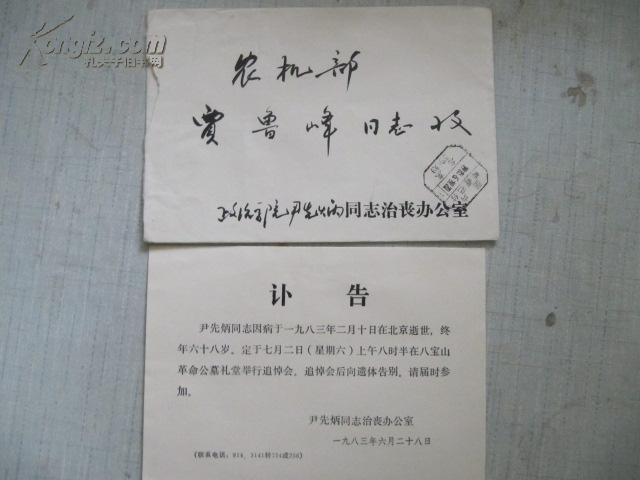 Kongfz.com
孔夫子旧书网
农机部
贾鲁峰同志收
政治学院尹先炳同志治丧办公室
讣告
尹先炳同志因病于一九八三年二月十日在北京逝世，终
年六十八岁。定于七月二日（星期六）上午八时半在八宝山
革命公墓礼堂举行追悼会。追悼会后向遗体告别。请届时参
加。
尹先炳同志治丧办公室
一九八三年六月二十八日
（联系电话：814，3141转774或256）